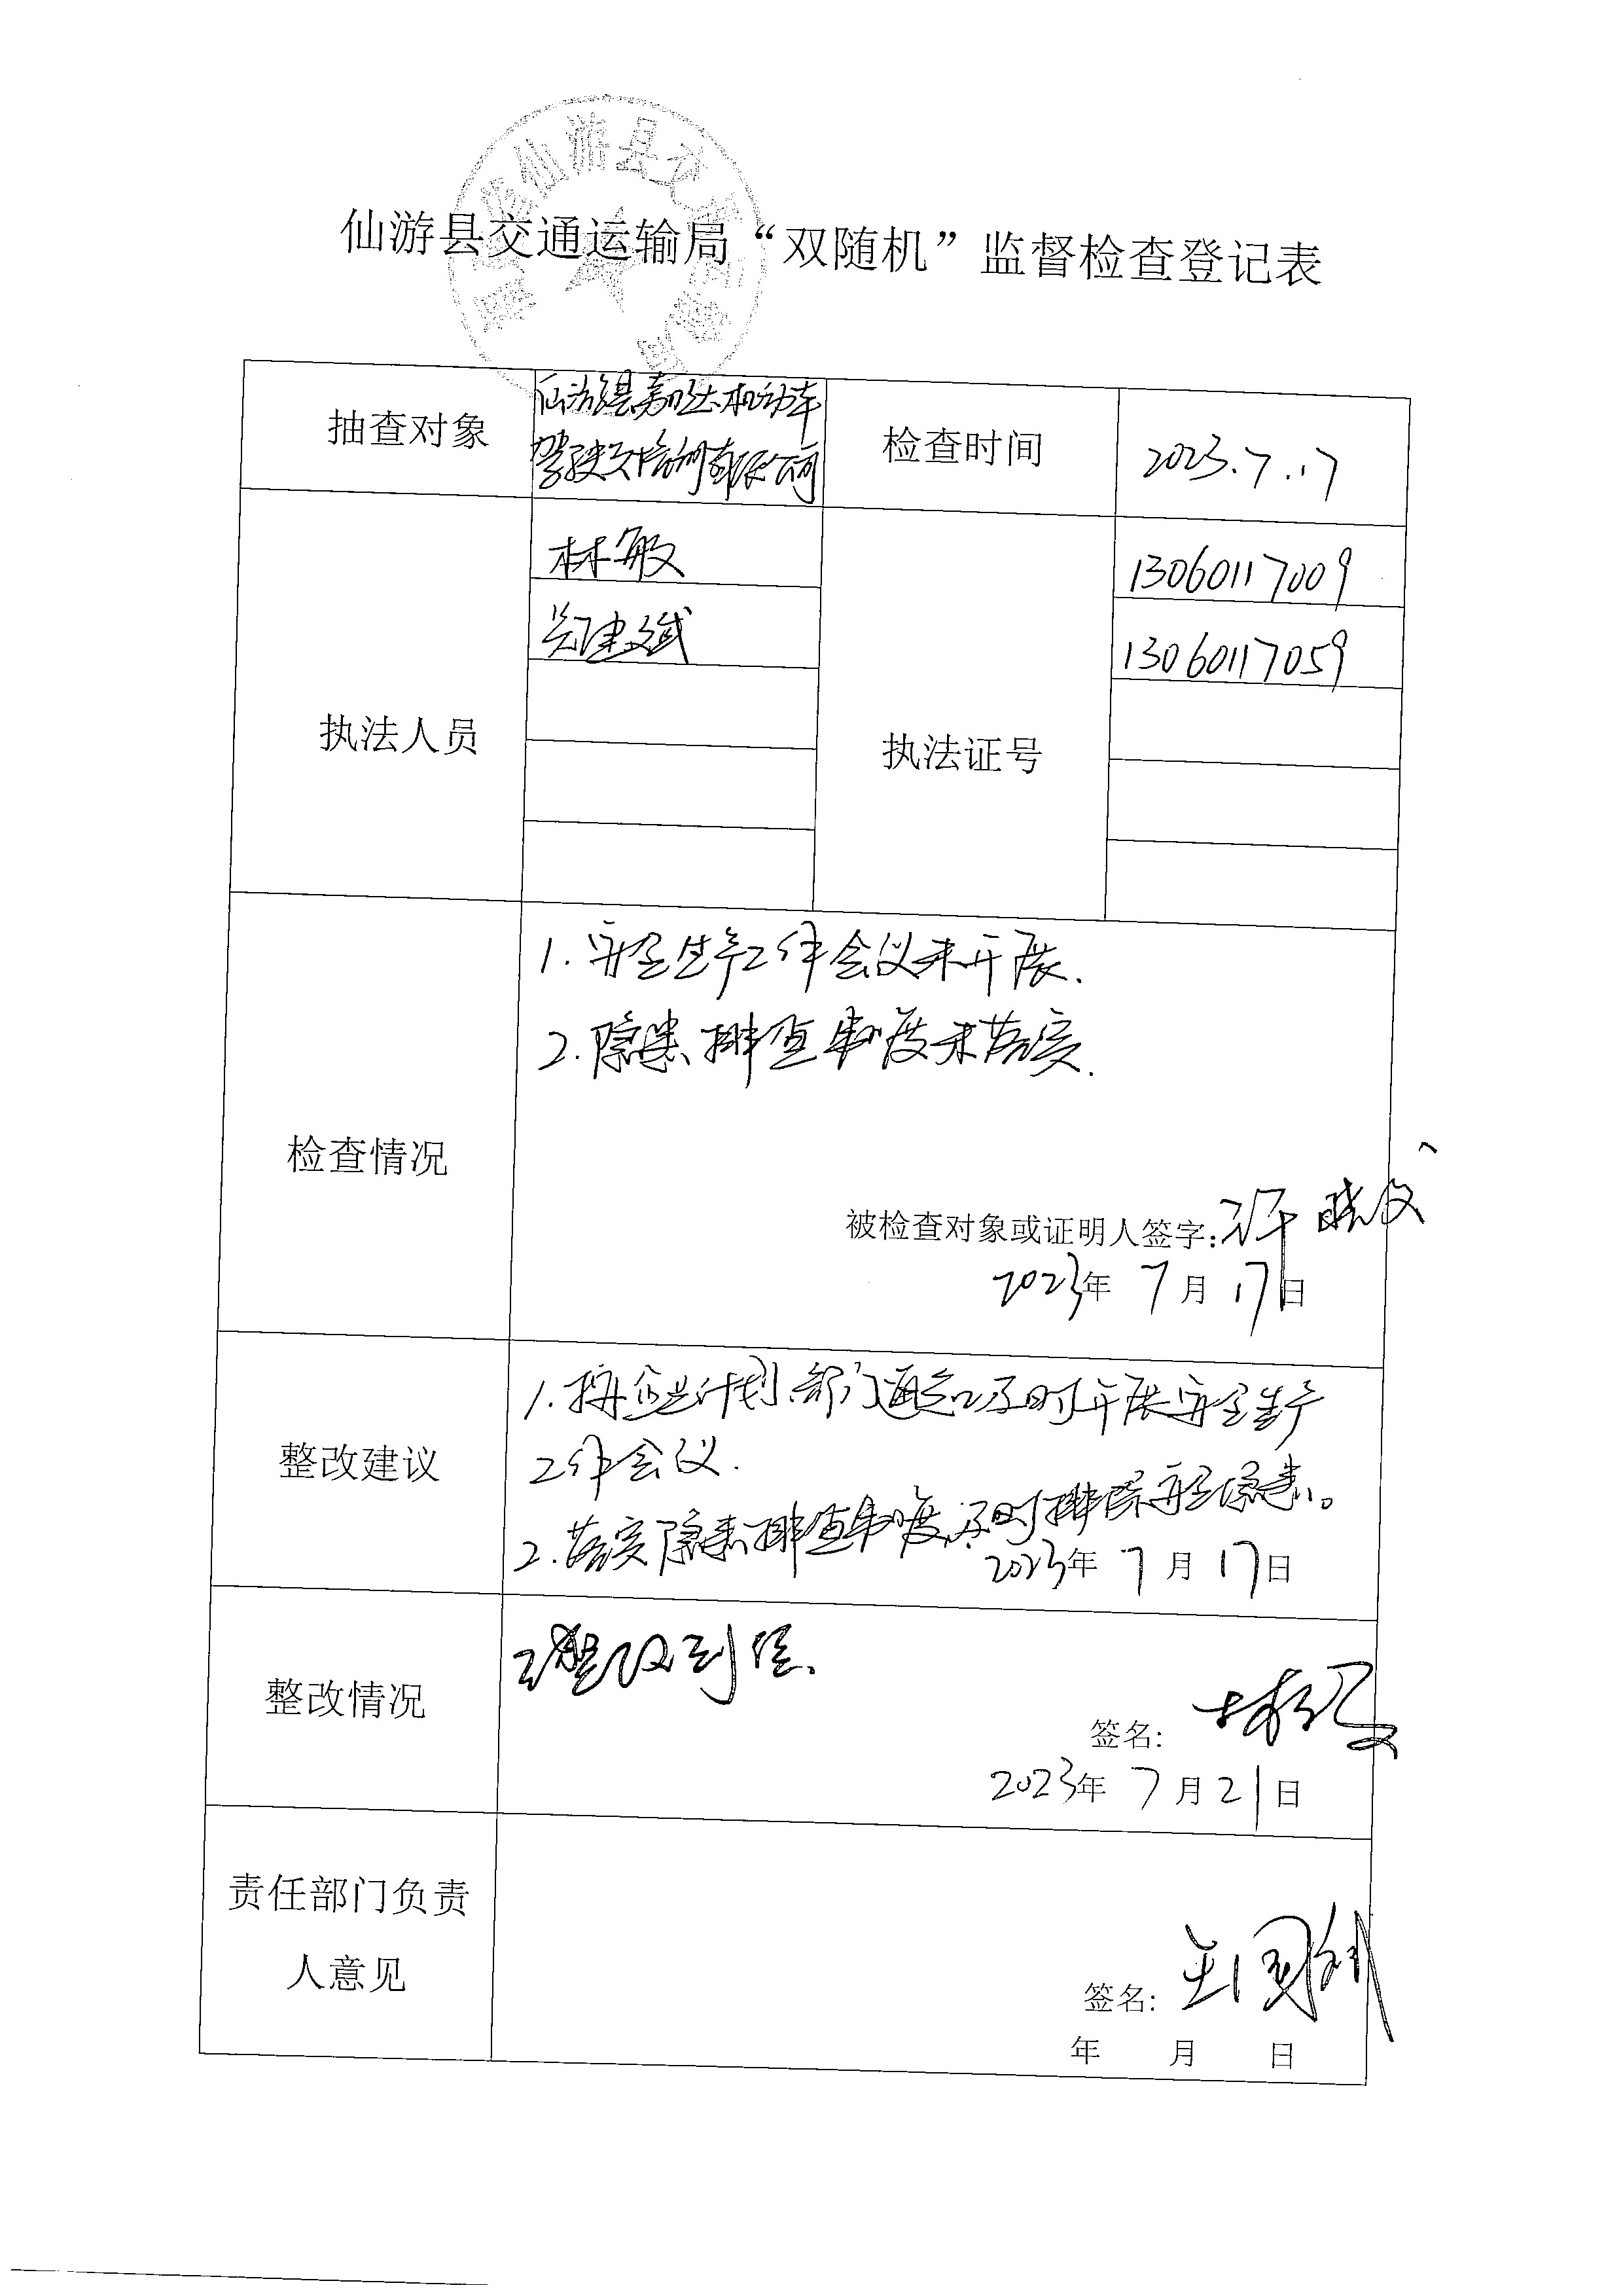 仙游县交通运输局“双随机”监督检查登记表
抽查对象
仙游县嘉达机动车
驾驶员培训有限公司
检查时间
2023.7.17
执法人员
林敏
郑建斌
执法证号
13060117009
13060117059
检查情况
1.安全生产工作会议未开展.
2.隐患排查制度未落实.
被检查对象或证明人签字:许晓
2023年 7月 17日
整改建议
1.按企业计划、部门通知及时开展安全生产
工作会议.
2.落实隐患排查制度,及时排除安全隐患。
2023年 7月 17日
整改情况
已整改到位.
签名: 林敏
2023年 7月21日
责任部门负责
人意见
签名: 王国
年 月 日